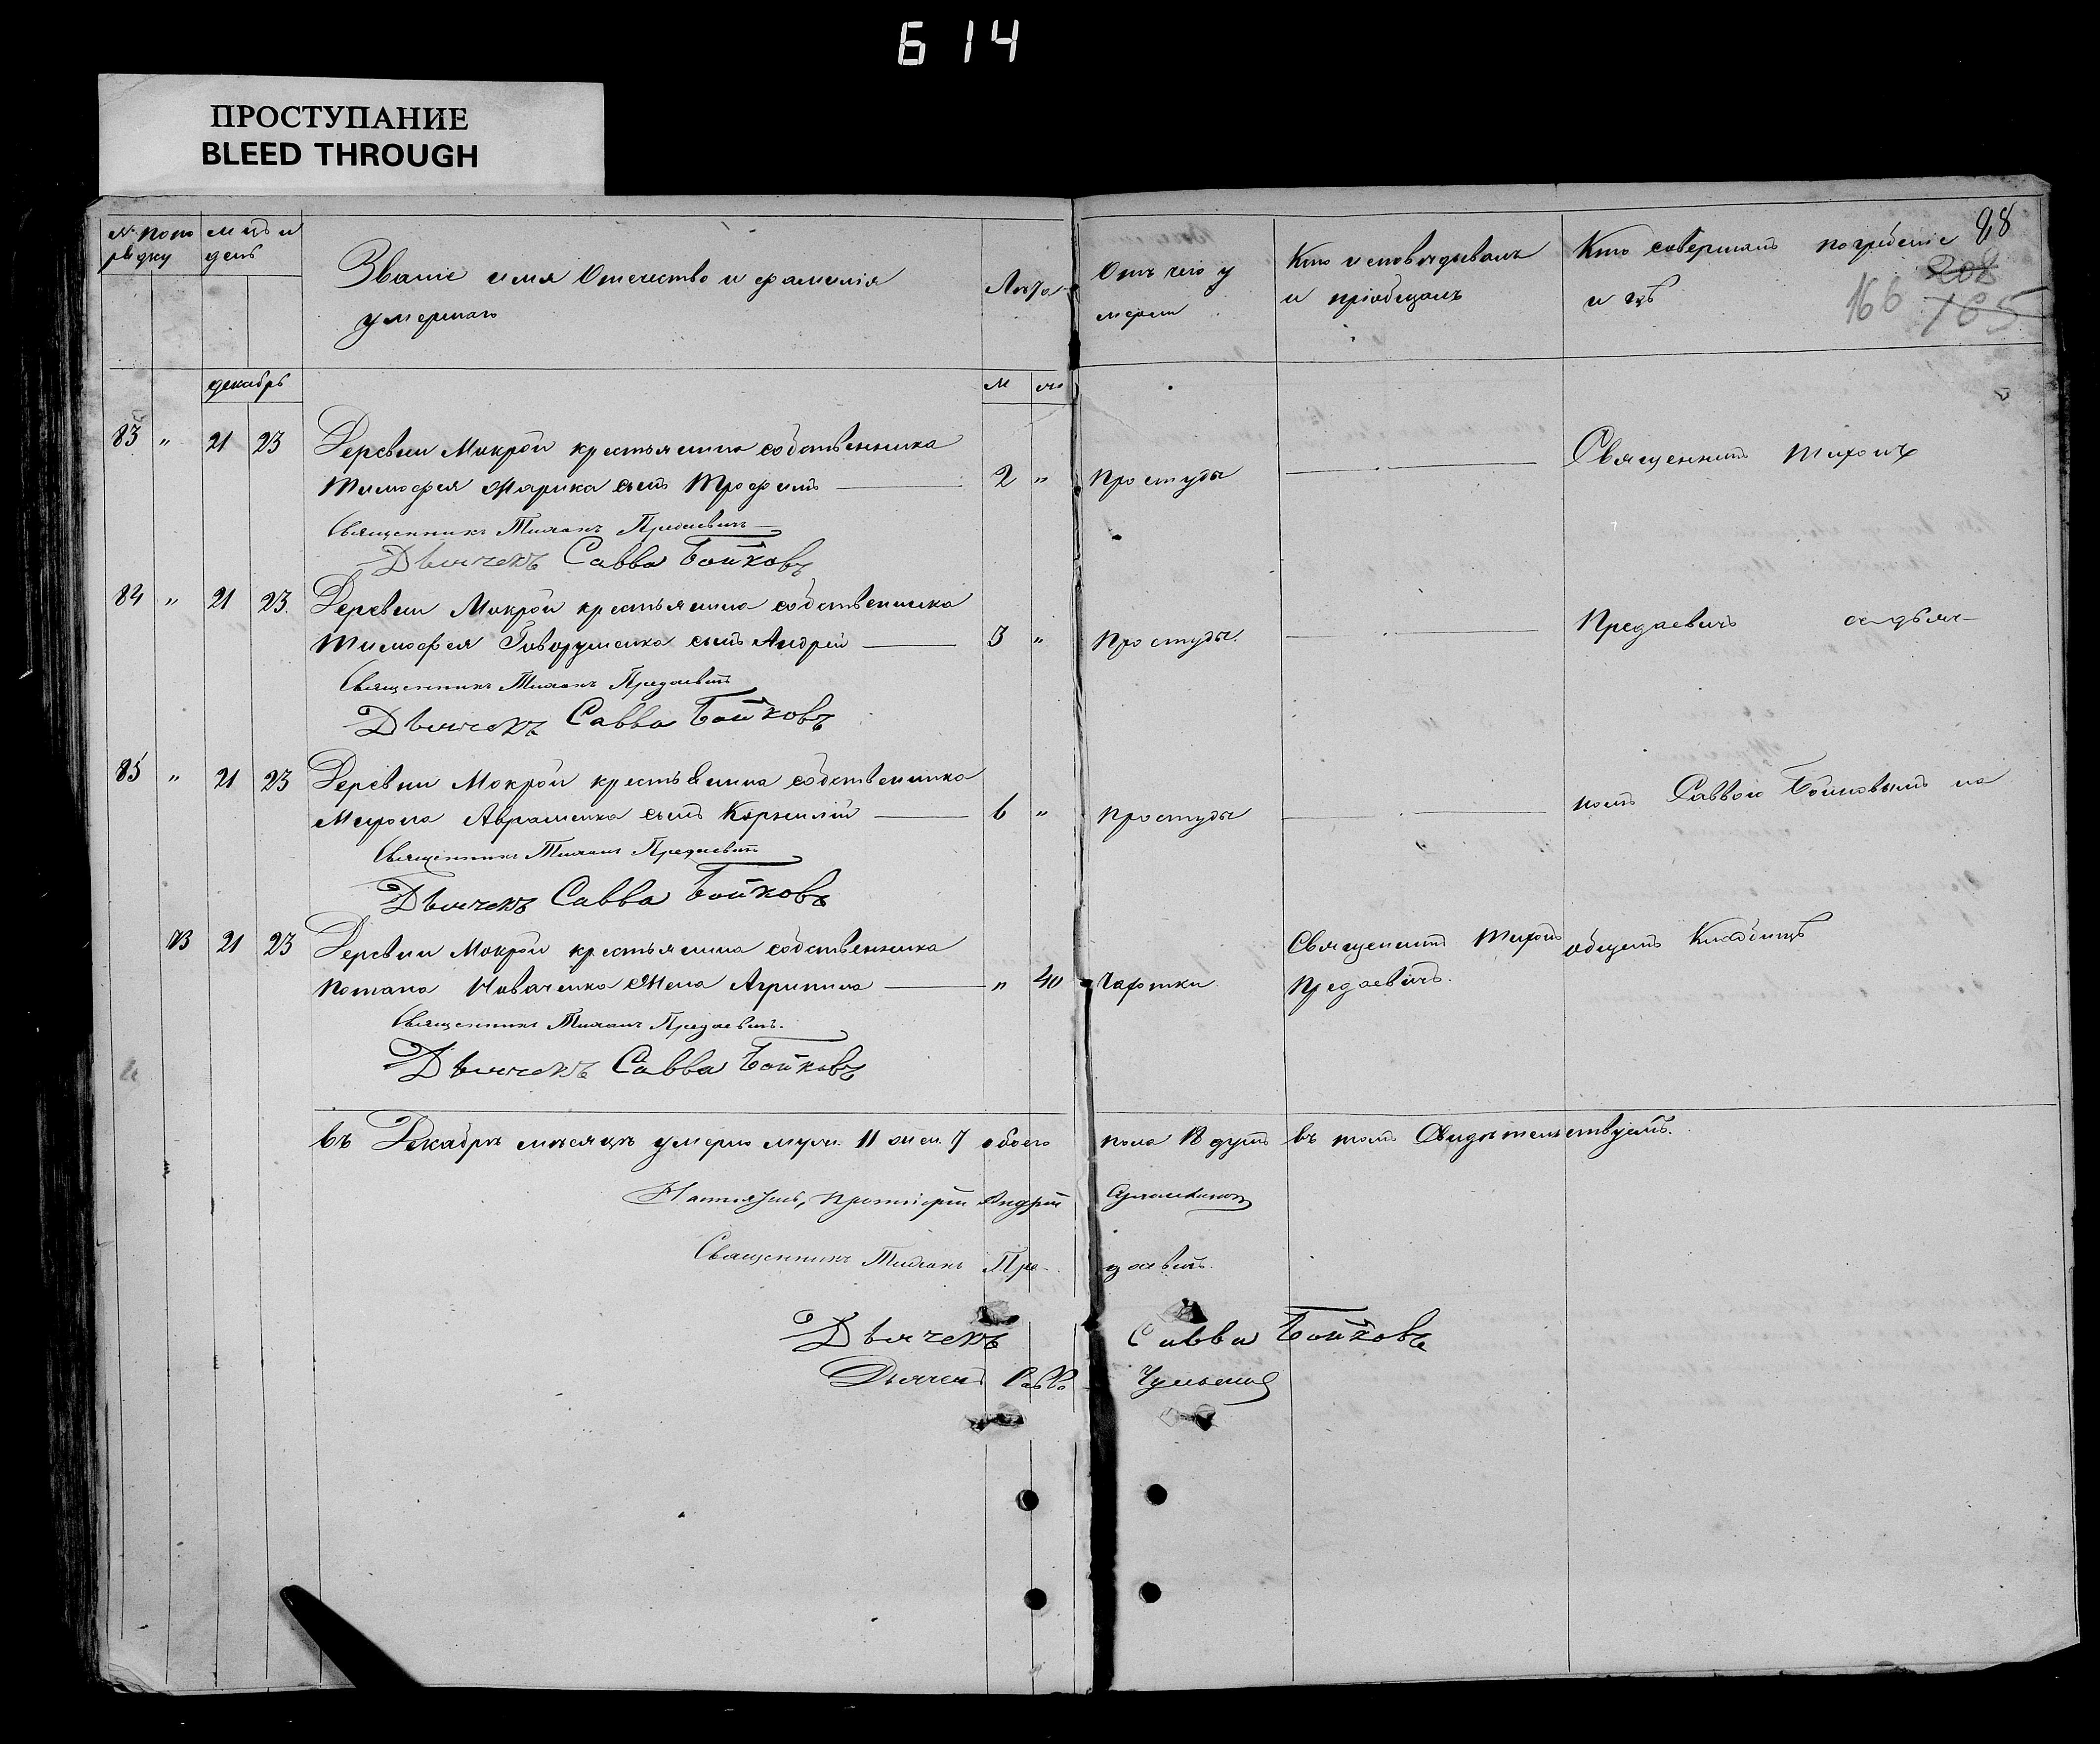 Б 14
ПРОСТУПАНИЕ
BLEED THROUGH
98
208
166 165
№ попо
рядку
м-цъ и
день
Званіе имя Отечество и фамилія
умершаго
Лѣта
Отъ чего у
мерли
Кто исповѣдывалъ
и пріобщалъ
Кто совершалъ погребеніе
и гдѣ
декабрь
м
83 " 21 23 Деревни Мокрой крестьянина собственника
Тимофея сынъ Трофимъ 2 " Простуды Священникъ Тихонъ
Священникъ Тихонъ Предаевичъ
Дьячекъ Савва Бойковъ
84 " 21 23 Деревни Мокрой крестьянина собственника
Тимофея Говорушенка сынъ Андрей 3 " Простуды Предаевичъ съ дьяч-
Священникъ Тихонъ Предаевичъ
Дьячекъ Савва Бойковъ
85 " 21 23 Деревни Мокрой крестьянина собственника
Мирона Авраменка сынъ Корнилій 6 " Простуды комъ Саввою Бойковымъ на
Священникъ Тихонъ Предаевичъ
Дьячекъ Савва Бойковъ
73 21 23 Деревни Мокрой крестьянина собственника
Потапа жена Агрипина " 40 Чахотки
Священникъ Тихонъ
Предаевичъ.
общемъ Кладбищѣ
Священникъ Тихонъ Предаевичъ.
Дьячекъ Савва Бойковъ
въ Декабрѣ мѣсяцѣ умерло муж. 11 жен. 7 обоего пола 18 душъ въ томъ Свидѣтельствуемъ.
Настоятель, протоіерей Андрей
Священникъ Тихонъ Пре- даевичъ.
Дьячекъ Савва Бойковъ
Дьячекъ Савва